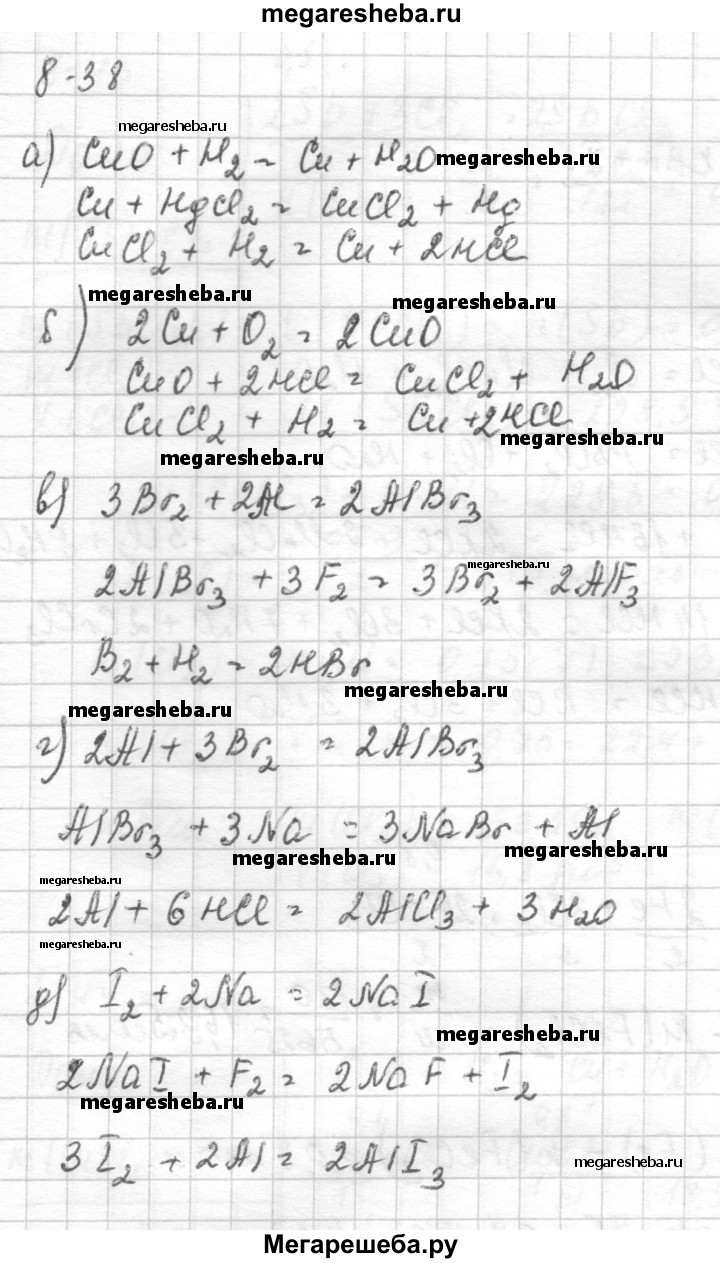 megaresheba.ru
8-38
megaresheba.ru
а) CuO + H₂ = Cu + H₂O megaresheba.ru
Cu + HgCl₂ = CuCl₂ + Hg
CuCl₂ + H₂ = Cu + 2HCl
megaresheba.ru megaresheba.ru
б) 2Cu + O₂ = 2CuO
CuO + 2HCl = CuCl₂ + H₂O
CuCl₂ + H₂ = Cu + 2HCl
megaresheba.ru
megaresheba.ru
в) 3Br₂ + 2Al = 2AlBr₃
megaresheba.ru
2AlBr₃ + 3F₂ = 3Br₂ + 2AlF₃
B₂ + H₂ = 2HBr
megaresheba.ru
megaresheba.ru
г) 2Al + 3Br₂ = 2AlBr₃
AlBr₃ + 3Na = 3NaBr + Al
megaresheba.ru megaresheba.ru
megaresheba.ru
2Al + 6HCl = 2AlCl₃ + 3H₂O
megaresheba.ru
д) I₂ + 2Na = 2NaI
megaresheba.ru
2NaI + F₂ = 2NaF + I₂
megaresheba.ru
3I₂ + 2Al = 2AlI₃ megaresheba.ru
Мегарешеба.ру